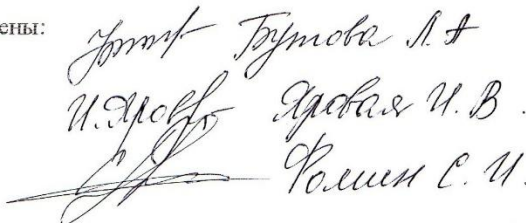 ены:
Бутова Л.А
И.Яров Яровая И.В.
Фомин С.И.